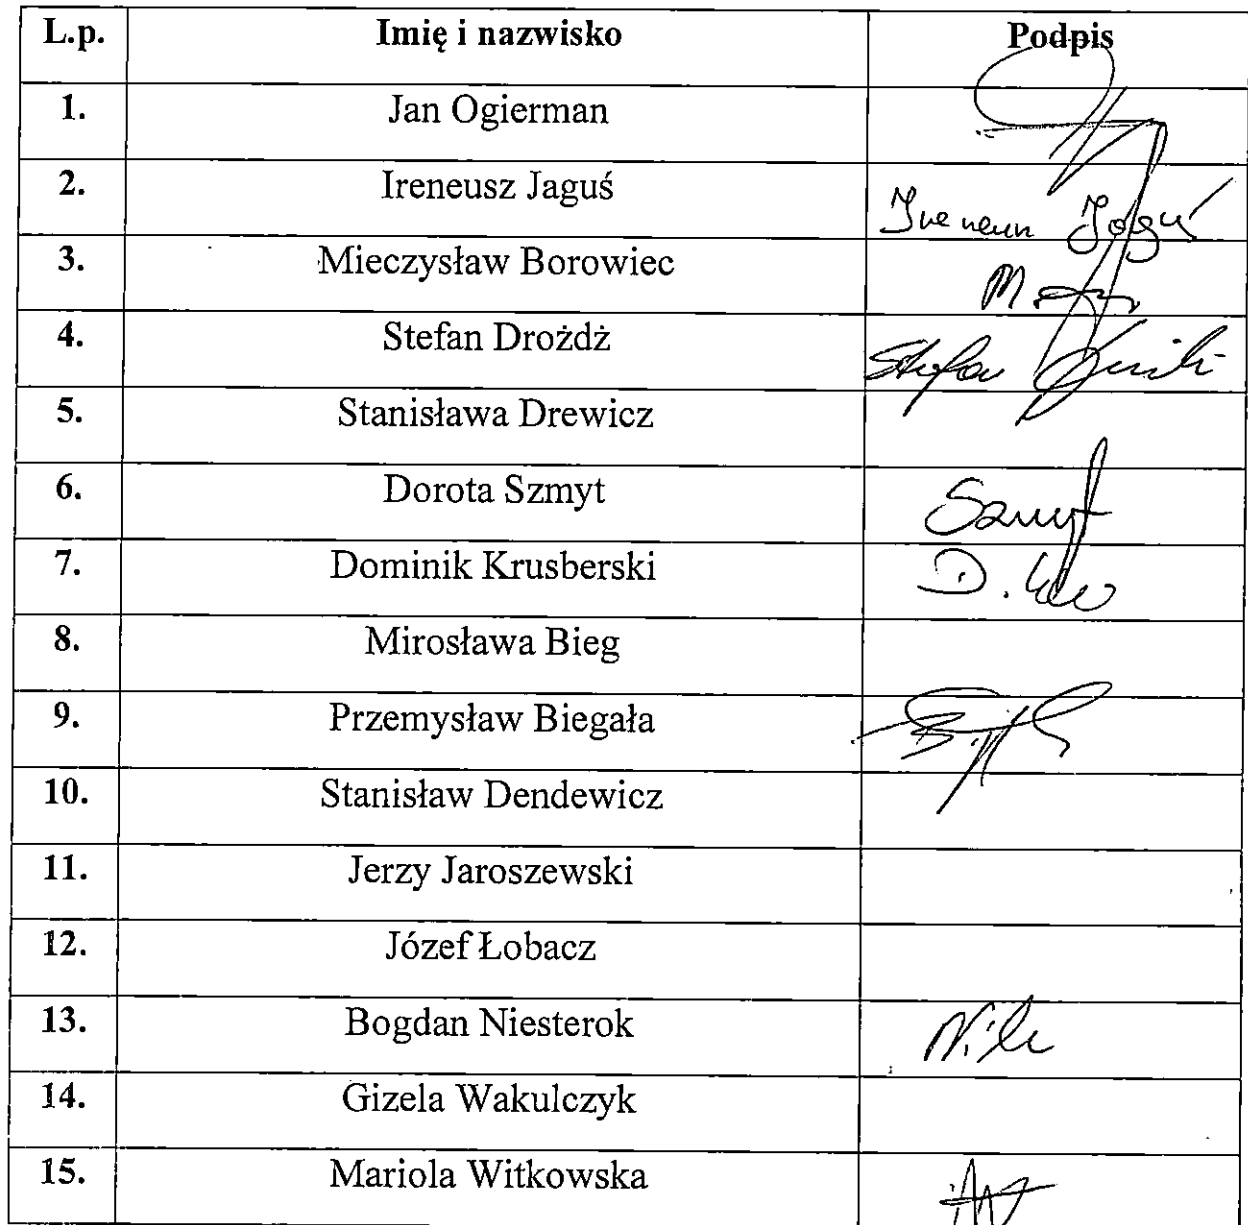 L.p. Imię i nazwisko Podpis
1. Jan Ogierman
2. Ireneusz Jaguś Ireneusz Jaguś
3. Mieczysław Borowiec
4. Stefan Drożdż Stefan
5. Stanisława Drewicz
6. Dorota Szmyt Szmyt
7. Dominik Krusberski D.
8. Mirosława Bieg
9. Przemysław Biegała
10. Stanisław Dendewicz
11. Jerzy Jaroszewski
12. Józef Łobacz
13. Bogdan Niesterok
14. Gizela Wakulczyk
15. Mariola Witkowska